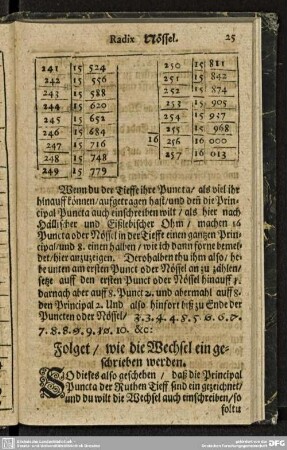 Radix Nössel. 25
241 | 15 | 524
242 | 15 | 556
243 | 15 | 588
244 | 15 | 620
245 | 15 | 652
246 | 15 | 684
247 | 15 | 716
248 | 15 | 748
249 | 15 | 779
250 | 15 | 811
251 | 15 | 842
252 | 15 | 874
253 | 15 | 905
254 | 15 | 937
255 | 15 | 968
16 | 256 | 16 | 000
257 | 16 | 013
Wenn du der Tieffe ihre Puncta / als viel ihr
hinauff können / auffgetragen hast / und den die Prin-
cipal Puncta auch einschreiben wilt / als hier nach
Hällischer und Eißlebischer Ohm / machen 16
Puncta oder Nössel in der Tieffe einen gantzen Prin-
cipal / und 8. einen halben / wie ich dann forne bemel-
det / hier anzuzeigen. Derohalben thu ihm also / he-
be unten am ersten Punct oder Nössel an zu zählen /
setze auff den ersten Punct oder Nössel hinauff 1.
darnach aber auff 8. Punct 2. und abermahl auff 8.
den Principal 2. Und also hinfort biß zu Ende der
Puncten oder Nössel / 3. 3. 4. 4. 5. 5. 6. 6. 7.
7. 8. 8. 9. 9. 10. 10. &c:
Folget / wie die Wechsel ein ge-
schrieben werden.
SO dieses also geschehen / daß die Principal
Puncta der Ruthen Tieff sind ein gezeichnet /
und du wilt die Wechsel auch einschreiben / so
soltu